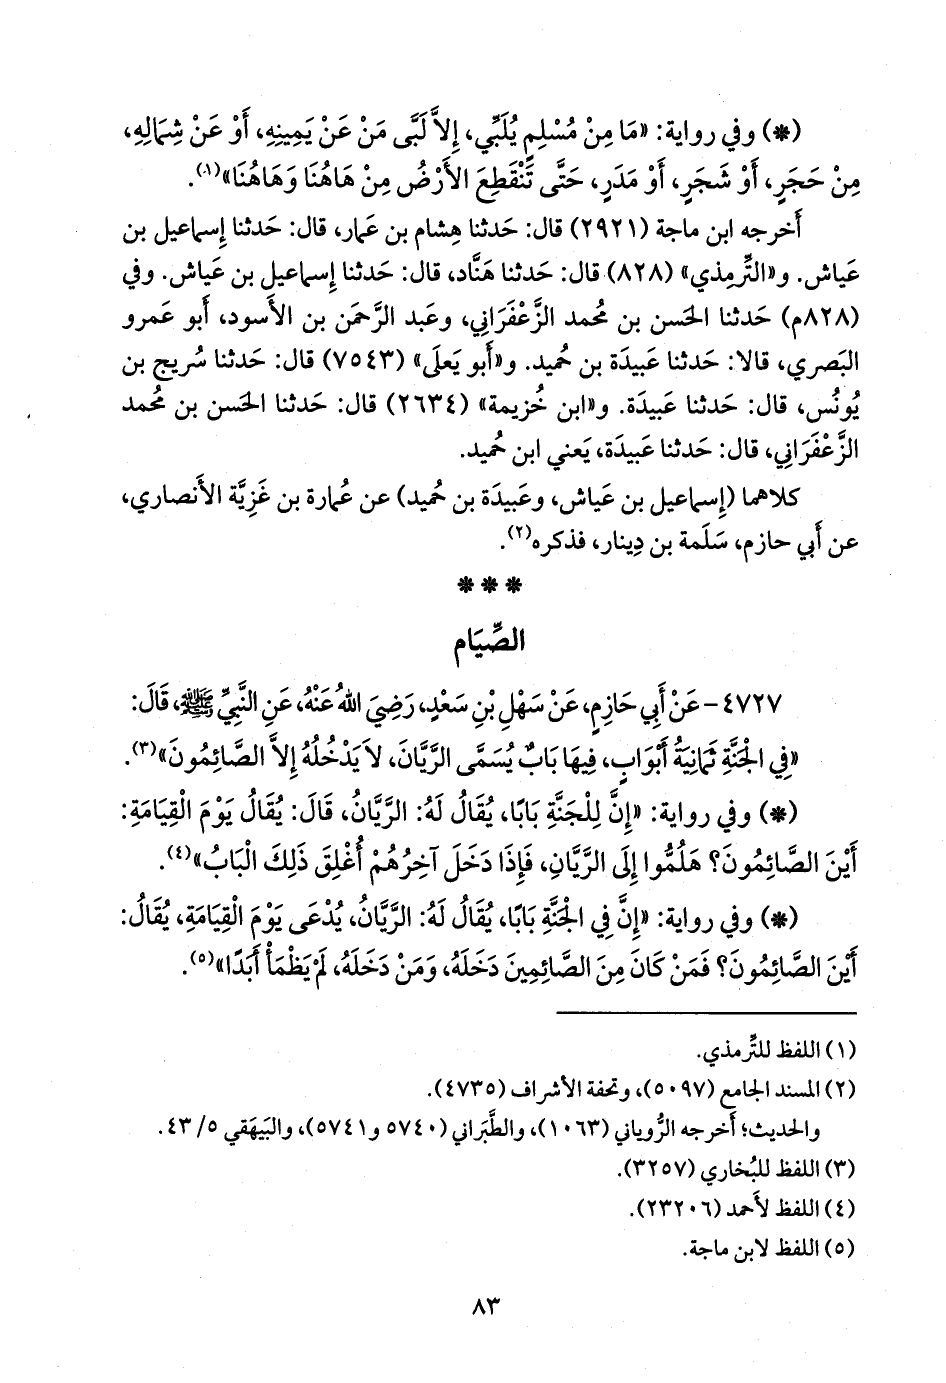 (*) وفي رواية: «مَا مِنْ مُسْلِمٍ يُلَبِّي، إِلاَّ لَبَّى مَنْ عَنْ يَمِينِهِ، أَوْ عَنْ شِمَالِهِ،
مِنْ حَجَرٍ، أَوْ شَجَرٍ، أَوْ مَدَرٍ، حَتَّى تَنْقَطِعَ الأَرْضُ مِنْ هَاهُنَا وَهَاهُنَا»(١).
أَخرجه ابن ماجة (٢٩٢١) قال: حَدثنا هِشام بن عَمار، قال: حَدثنا إِسماعيل بن
عَياش. و«التِّرمِذي» (٨٢٨) قال: حَدثنا هَنَّاد، قال: حَدثنا إِسماعيل بن عَياش. وفي
(٨٢٨م) حَدثنا الحَسن بن مُحمد الزَّعْفَراني، وعَبد الرَّحمَن بن الأَسود، أَبو عَمرو
البَصري، قالا: حَدثنا عَبيدَة بن حُميد. و«أَبو يَعلَى» (٧٥٤٣) قال: حَدثنا سُريج بن
يُونُس، قال: حَدثنا عَبيدَة. و«ابن خُزيمة» (٢٦٣٤) قال: حَدثنا الحَسن بن مُحمد
الزَّعْفَرَاني، قال: حَدثنا عَبيدَة، يَعني ابن حُميد.
كلاهما (إِسماعيل بن عَياش، وعَبيدَة بن حُميد) عن عُمارة بن غَزِيَّة الأَنصاري،
عن أَبي حازم، سَلَمة بن دِينار، فذكره(٢).
* * *
الصِّيَام
٤٧٢٧- عَنْ أَبِي حَازِمٍ، عَنْ سَهْلِ بْنِ سَعْدٍ، رَضِيَ اللهُ عَنْهُ، عَنِ النَّبِيِّ ﷺ، قَالَ:
«فِي الْجَنَّةِ ثَمَانِيَةُ أَبْوَابٍ، فِيهَا بَابٌ يُسَمَّى الرَّيَّانَ، لاَ يَدْخُلُهُ إِلاَّ الصَّائِمُونَ»(٣).
(*) وفي رواية: «إِنَّ لِلْجَنَّةِ بَابًا، يُقَالُ لَهُ: الرَّيَّانُ، قَالَ: يُقَالُ يَوْمَ الْقِيَامَةِ:
أَيْنَ الصَّائِمُونَ؟ هَلُمُّوا إِلَى الرَّيَّانِ، فَإِذَا دَخَلَ آخِرُهُمْ أُغْلِقَ ذَلِكَ الْبَابُ»(٤).
(*) وفي رواية: «إِنَّ فِي الْجَنَّةِ بَابًا، يُقَالُ لَهُ: الرَّيَّانُ، يُدْعَى يَوْمَ الْقِيَامَةِ، يُقَالُ:
أَيْنَ الصَّائِمُونَ؟ فَمَنْ كَانَ مِنَ الصَّائِمِينَ دَخَلَهُ، وَمَنْ دَخَلَهُ، لَمْ يَظْمَأْ أَبَدًا»(٥).
(١) اللفظ للتِّرمذي.
(٢) المسند الجامع (٥٠٩٧)، وتحفة الأشراف (٤٧٣٥).
والحديث؛ أَخرجه الرُّوياني (١٠٦٣)، والطَّبَراني (٥٧٤٠ و٥٧٤١)، والبَيهَقي ٥/ ٤٣.
(٣) اللفظ للبُخاري (٣٢٥٧).
(٤) اللفظ لأَحمد (٢٣٢٠٦).
(٥) اللفظ لابن ماجة.
٨٣